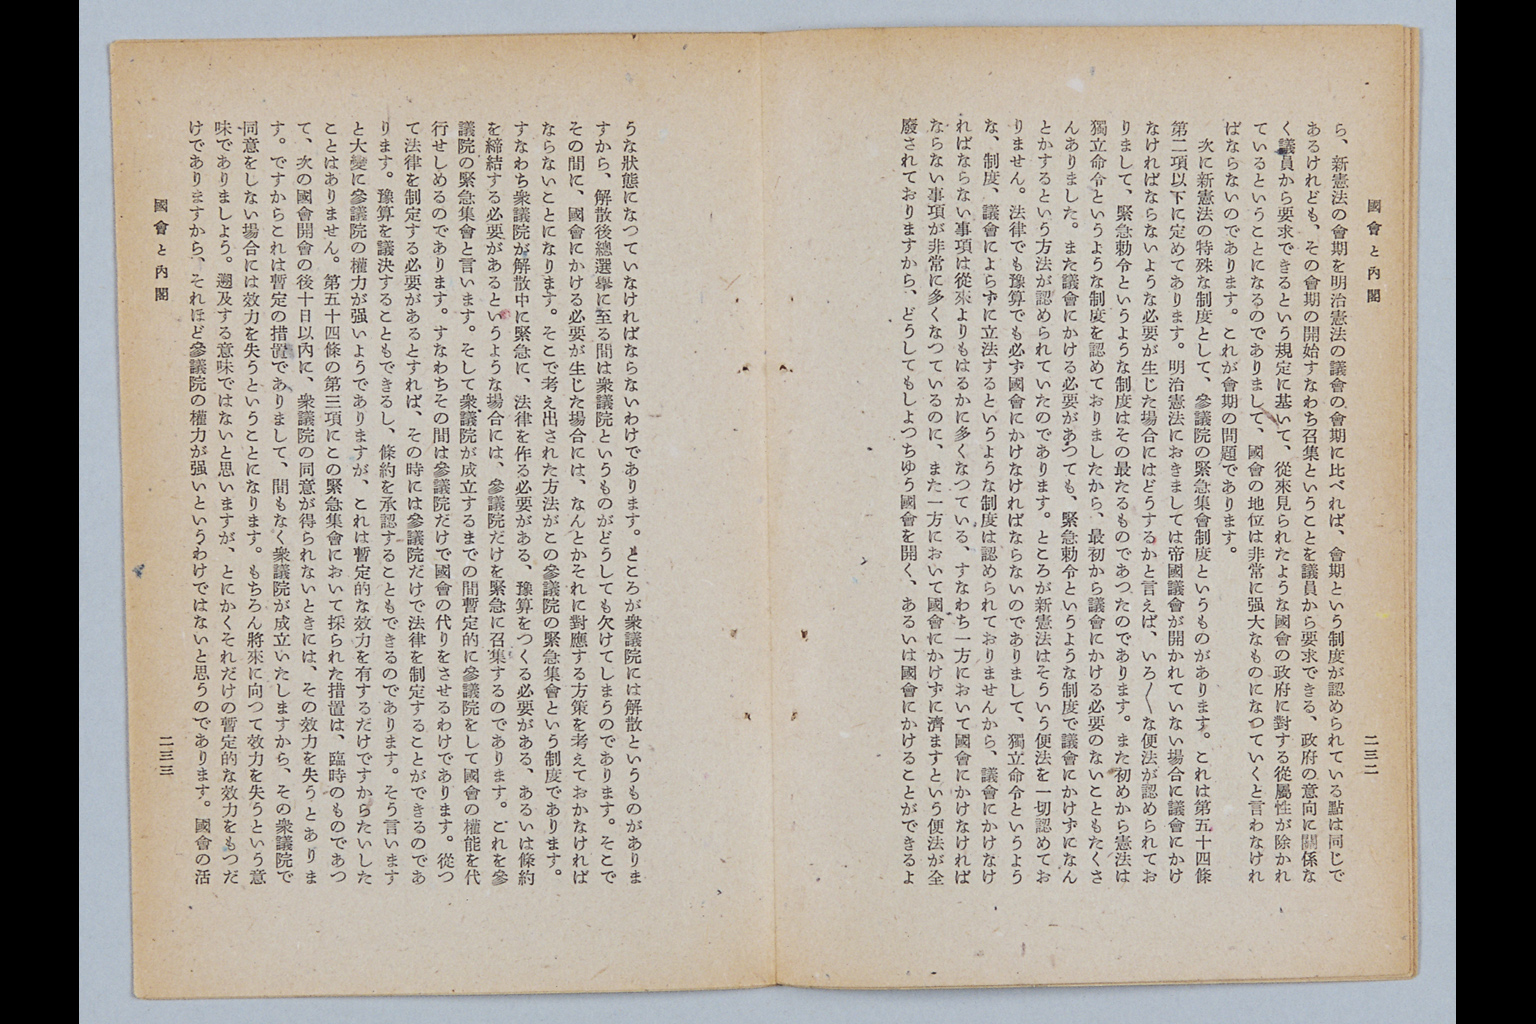 國會と內閣
二三二
ら、新憲法の會期を明治憲法の議會の會期に比べれば、會期という制度が認められている點は同じで
あるけれども、その會期の開始すなわち召集ということを議員から要求できる、政府の意向に關係な
く議員から要求できるという規定に基いて、從來見られたような國會の政府に對する從屬性が除かれ
ているということになるのでありまして、國會の地位は非常に强大なものになつていくと言わなけれ
ばならないのであります。これが會期の問題であります。
次に新憲法の特殊な制度として、參議院の緊急集會制度というものがあります。これは第五十四條
第二項以下に定めてあります。明治憲法におきましては帝國議會が開かれていない場合に議會にかけ
なければならないような必要が生じた場合にはどうするかと言えば、いろ〱な便法が認められてお
りまして、緊急勅令というような制度はその最たるものであつたのであります。また初めから憲法は
獨立命令というような制度を認めておりましたから、最初から議會にかける必要のないこともたくさ
んありました。また議會にかける必要があつても、緊急勅令というような制度で議會にかけずになん
とかするという方法が認められていたのであります。ところが新憲法はそういう便法を一切認めてお
りません。法律でも豫算でも必ず國會にかけなければならないのでありまして、獨立命令というよう
な、制度、議會によらずに立法するというような制度は認められておりませんから、議會にかけなけ
ればならない事項は從來よりもはるかに多くなつている、すなわち一方において國會にかけなければ
ならない事項が非常に多くなつているのに、また一方において國會にかけずに濟ますという便法が全
廢されておりますから、どうしてもしよつちゆう國會を開く、あるいは國會にかけることができるよ
うな狀態になつていなければならないわけであります。ところが衆議院には解散というものがありま
すから、解散後總選擧に至る間は衆議院というものがどうしても欠けてしまうのであります。そこで
その間に、國會にかける必要が生じた場合には、なんとかそれに對應する方策を考えておかなければ
ならないことになります。そこで考え出された方法がこの參議院の緊急集會という制度であります。
すなわち衆議院が解散中に緊急に、法律を作る必要がある、豫算をつくる必要がある、あるいは條約
を締結する必要があるというような場合には、參議院だけを緊急に召集するのであります。これを參
議院の緊急集會と言います。そして衆議院が成立するまでの間暫定的に參議院をして國會の權能を代
行せしめるのであります。すなわちその間は參議院だけで國會の代りをさせるわけであります。從つ
て法律を制定する必要があるとすれば、その時には參議院だけで法律を制定することができるのであ
ります。豫算を議決することもできるし、條約を承認することもできるのであります。そう言います
と大變に參議院の權力が强いようでありますが、これは暫定的な效力を有するだけですからたいした
ことはありません。第五十四條の第三項にこの緊急集會において採られた措置は、臨時のものであつ
て、次の國會開會の後十日以內に、衆議院の同意が得られないときには、その效力を失うとありま
す。ですからこれは暫定の措置でありまして、間もなく衆議院が成立いたしますから、その衆議院で
同意をしない場合には效力を失うということになります。もちろん將來に向つて效力を失うという意
味でありましよう。遡及する意味ではないと思いますが、とにかくそれだけの暫定的な效力をもつだ
けでありますから、それほど參議院の權力が强いというわけではないと思うのであります。國會の活
國會と內閣
二三三